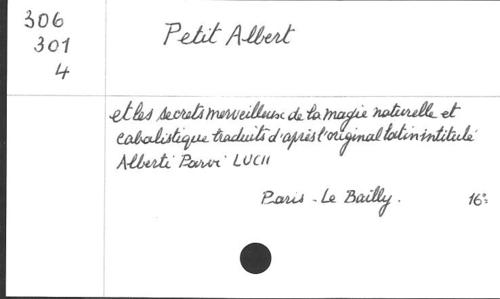 306
301
4
Petit Albert
et les secrets merveilleux de la magie naturelle et
cabalistique traduits d'après l'original latin intitulé
Alberti Parvi LUCII
Paris - Le Bailly. 16°